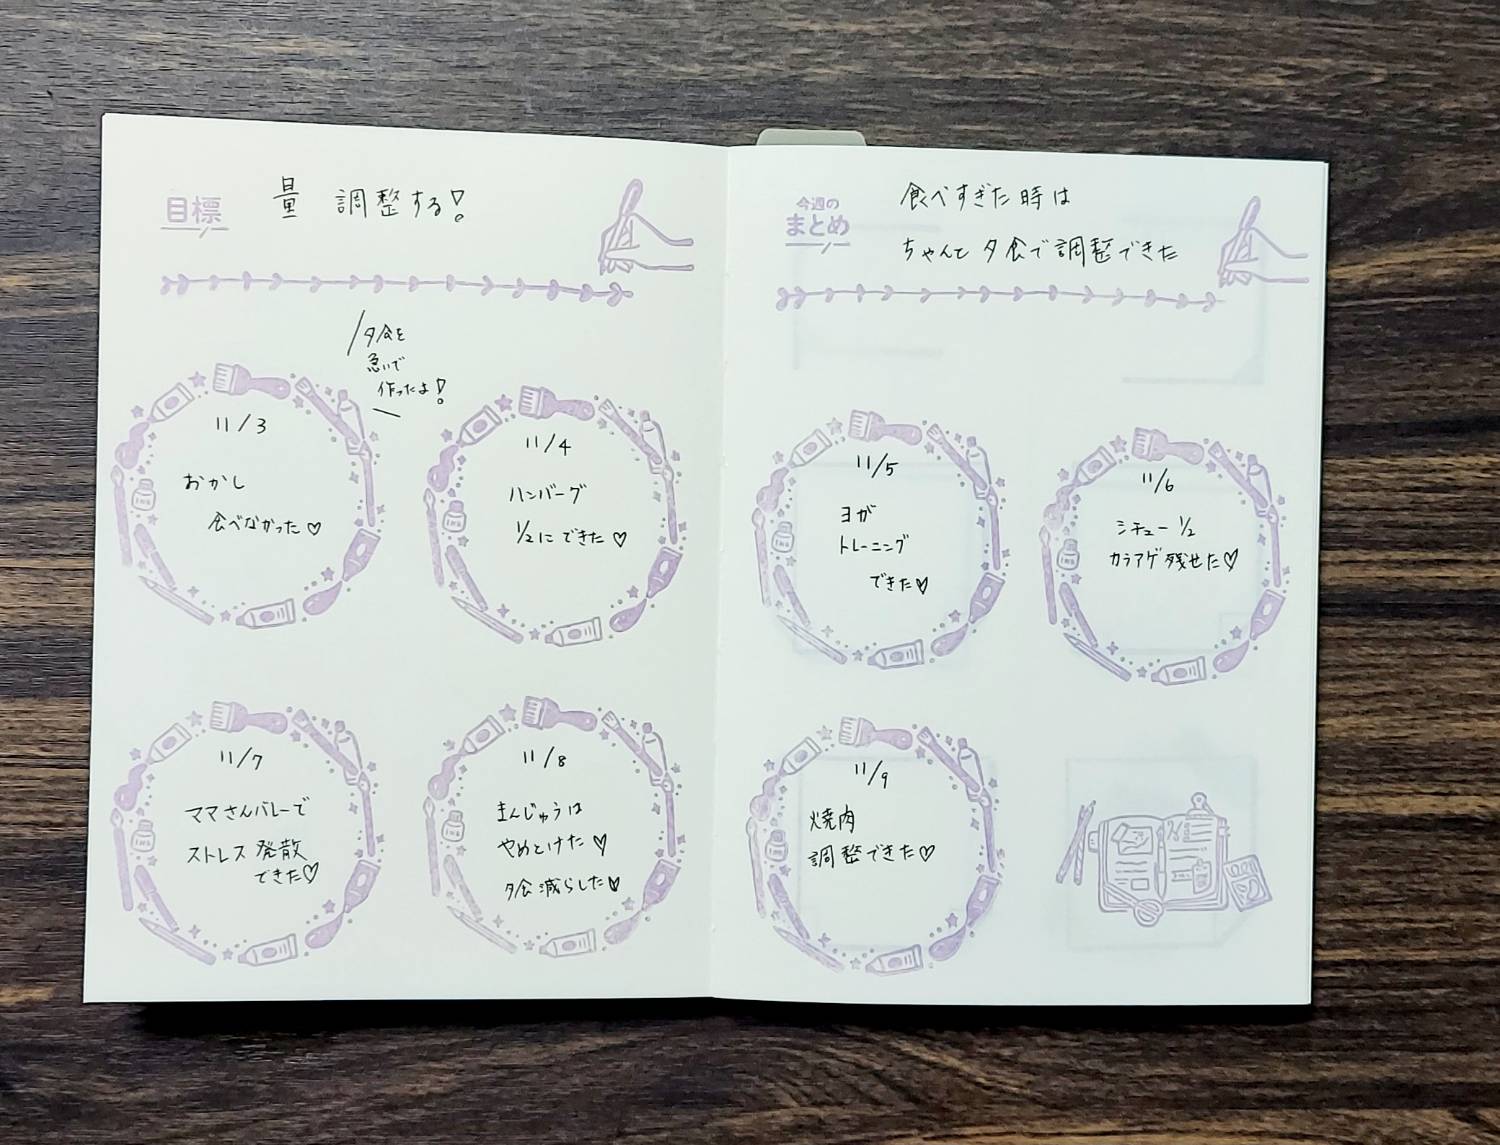 目標
量 調整する!
夕食を
急いで
作ったよ!
11/3
おかし
食べなかった♡
11/4
ハンバーグ
1/2にできた♡
11/7
ママさんバレーで
ストレス発散
できた♡
11/8
まんじゅうは
やめとけた♡
夕食減らした♡
今週の
まとめ
食べすぎた時は
ちゃんと夕食で調整できた
11/5
ヨガ
トレーニング
できた♡
11/6
シチュー 1/2
カラアゲ残せた♡
11/9
焼肉
調整できた♡
INK
INK
INK
INK
INK
INK
INK